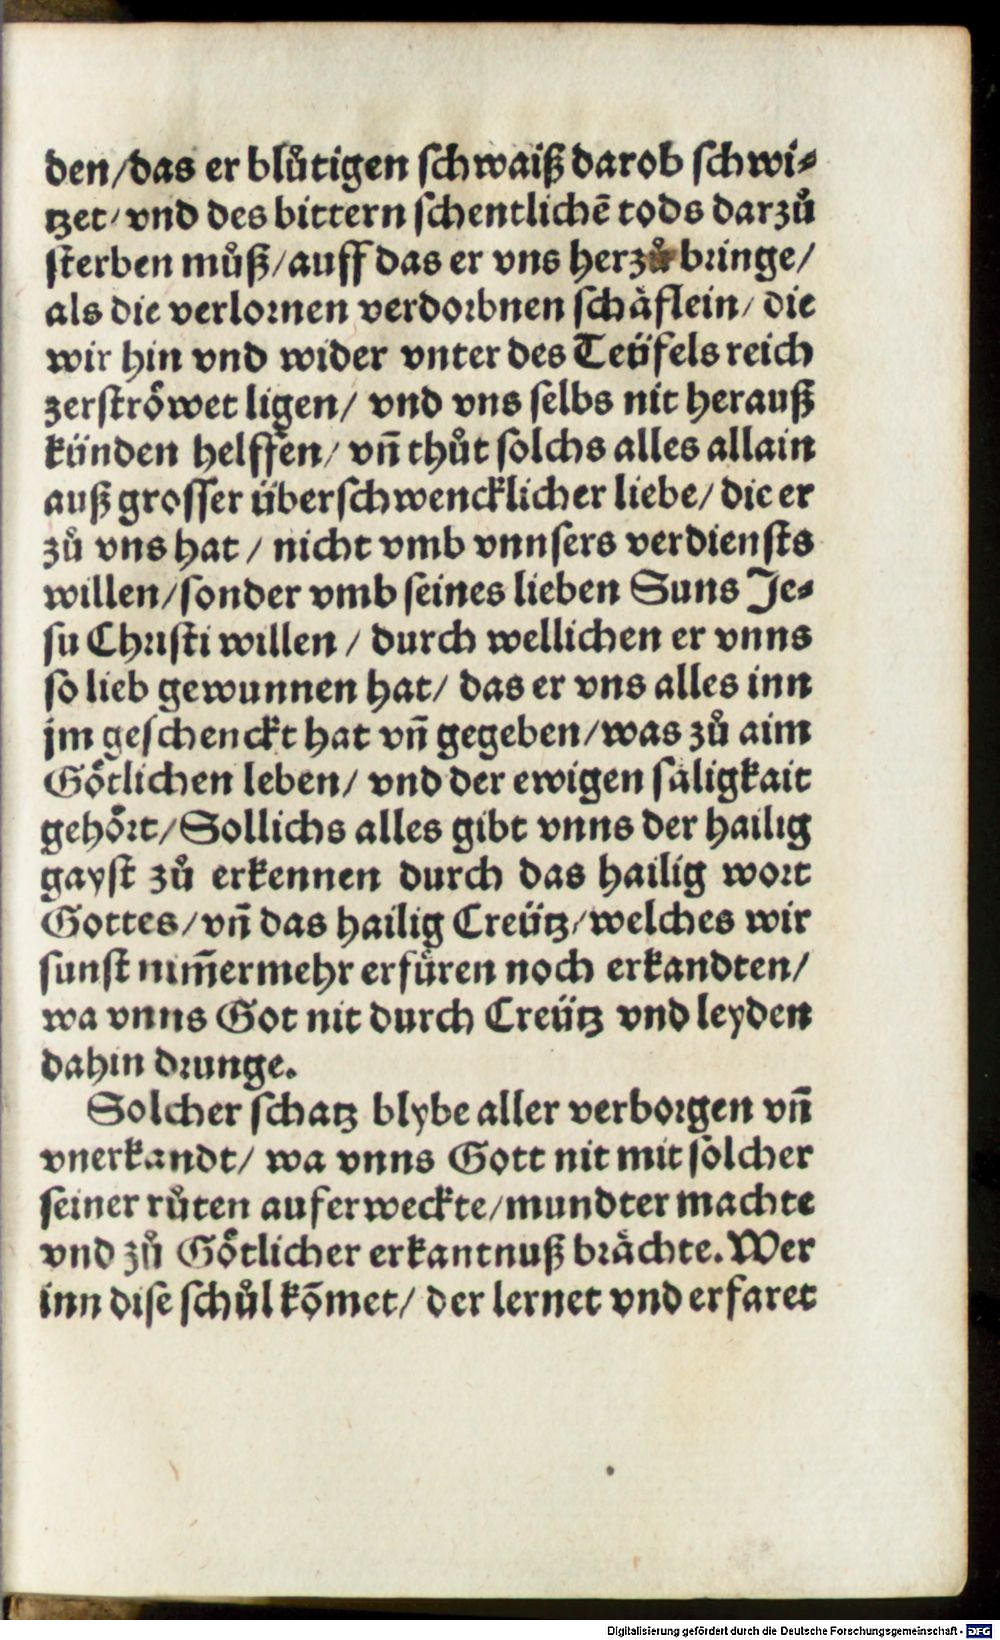 den/das er blůtigen schwaiß darob schwi⸗
tzet/ vnd des bittern schentlichẽ tods darzů
sterben můß/auff das er vns herzů bringe/
als die verlornen verdorbnen schäflein/ die
wir hin vnd wider vnter des Teüfels reich
zerströwet ligen/ vnd vns selbs nit herauß
künden helffen/ vñ thůt solchs alles allain
auß grosser überschwencklicher liebe/ die er
zů vns hat / nicht vmb vnnsers verdiensts
willen/sonder vmb seines lieben Suns Je⸗
su Christi willen / durch wellichen er vnns
so lieb gewunnen hat/ das er vns alles inn
jm geschenckt hat vñ gegeben/was zů aim
Götlichen leben/ vnd der ewigen säligkait
gehört/Sollichs alles gibt vnns der hailig
gayst zů erkennen durch das hailig wort
Gottes/vñ das hailig Creütz/welches wir
sunst nim̃ermehr erfüren noch erkandten/
wa vnns Got nit durch Creütz vnd leyden
dahin drunge.
Solcher schatz blybe aller verborgen vñ
vnerkandt/ wa vnns Gott nit mit sölcher
seiner růten auferweckte/mundter machte
vnd zů Götlicher erkantnuß brächte. Wer
inn dise schůl kõmet/ der lernet vnd erfaret
Digitalisierung gefördert durch die Deutsche Forschungsgemeinschaft - DFG